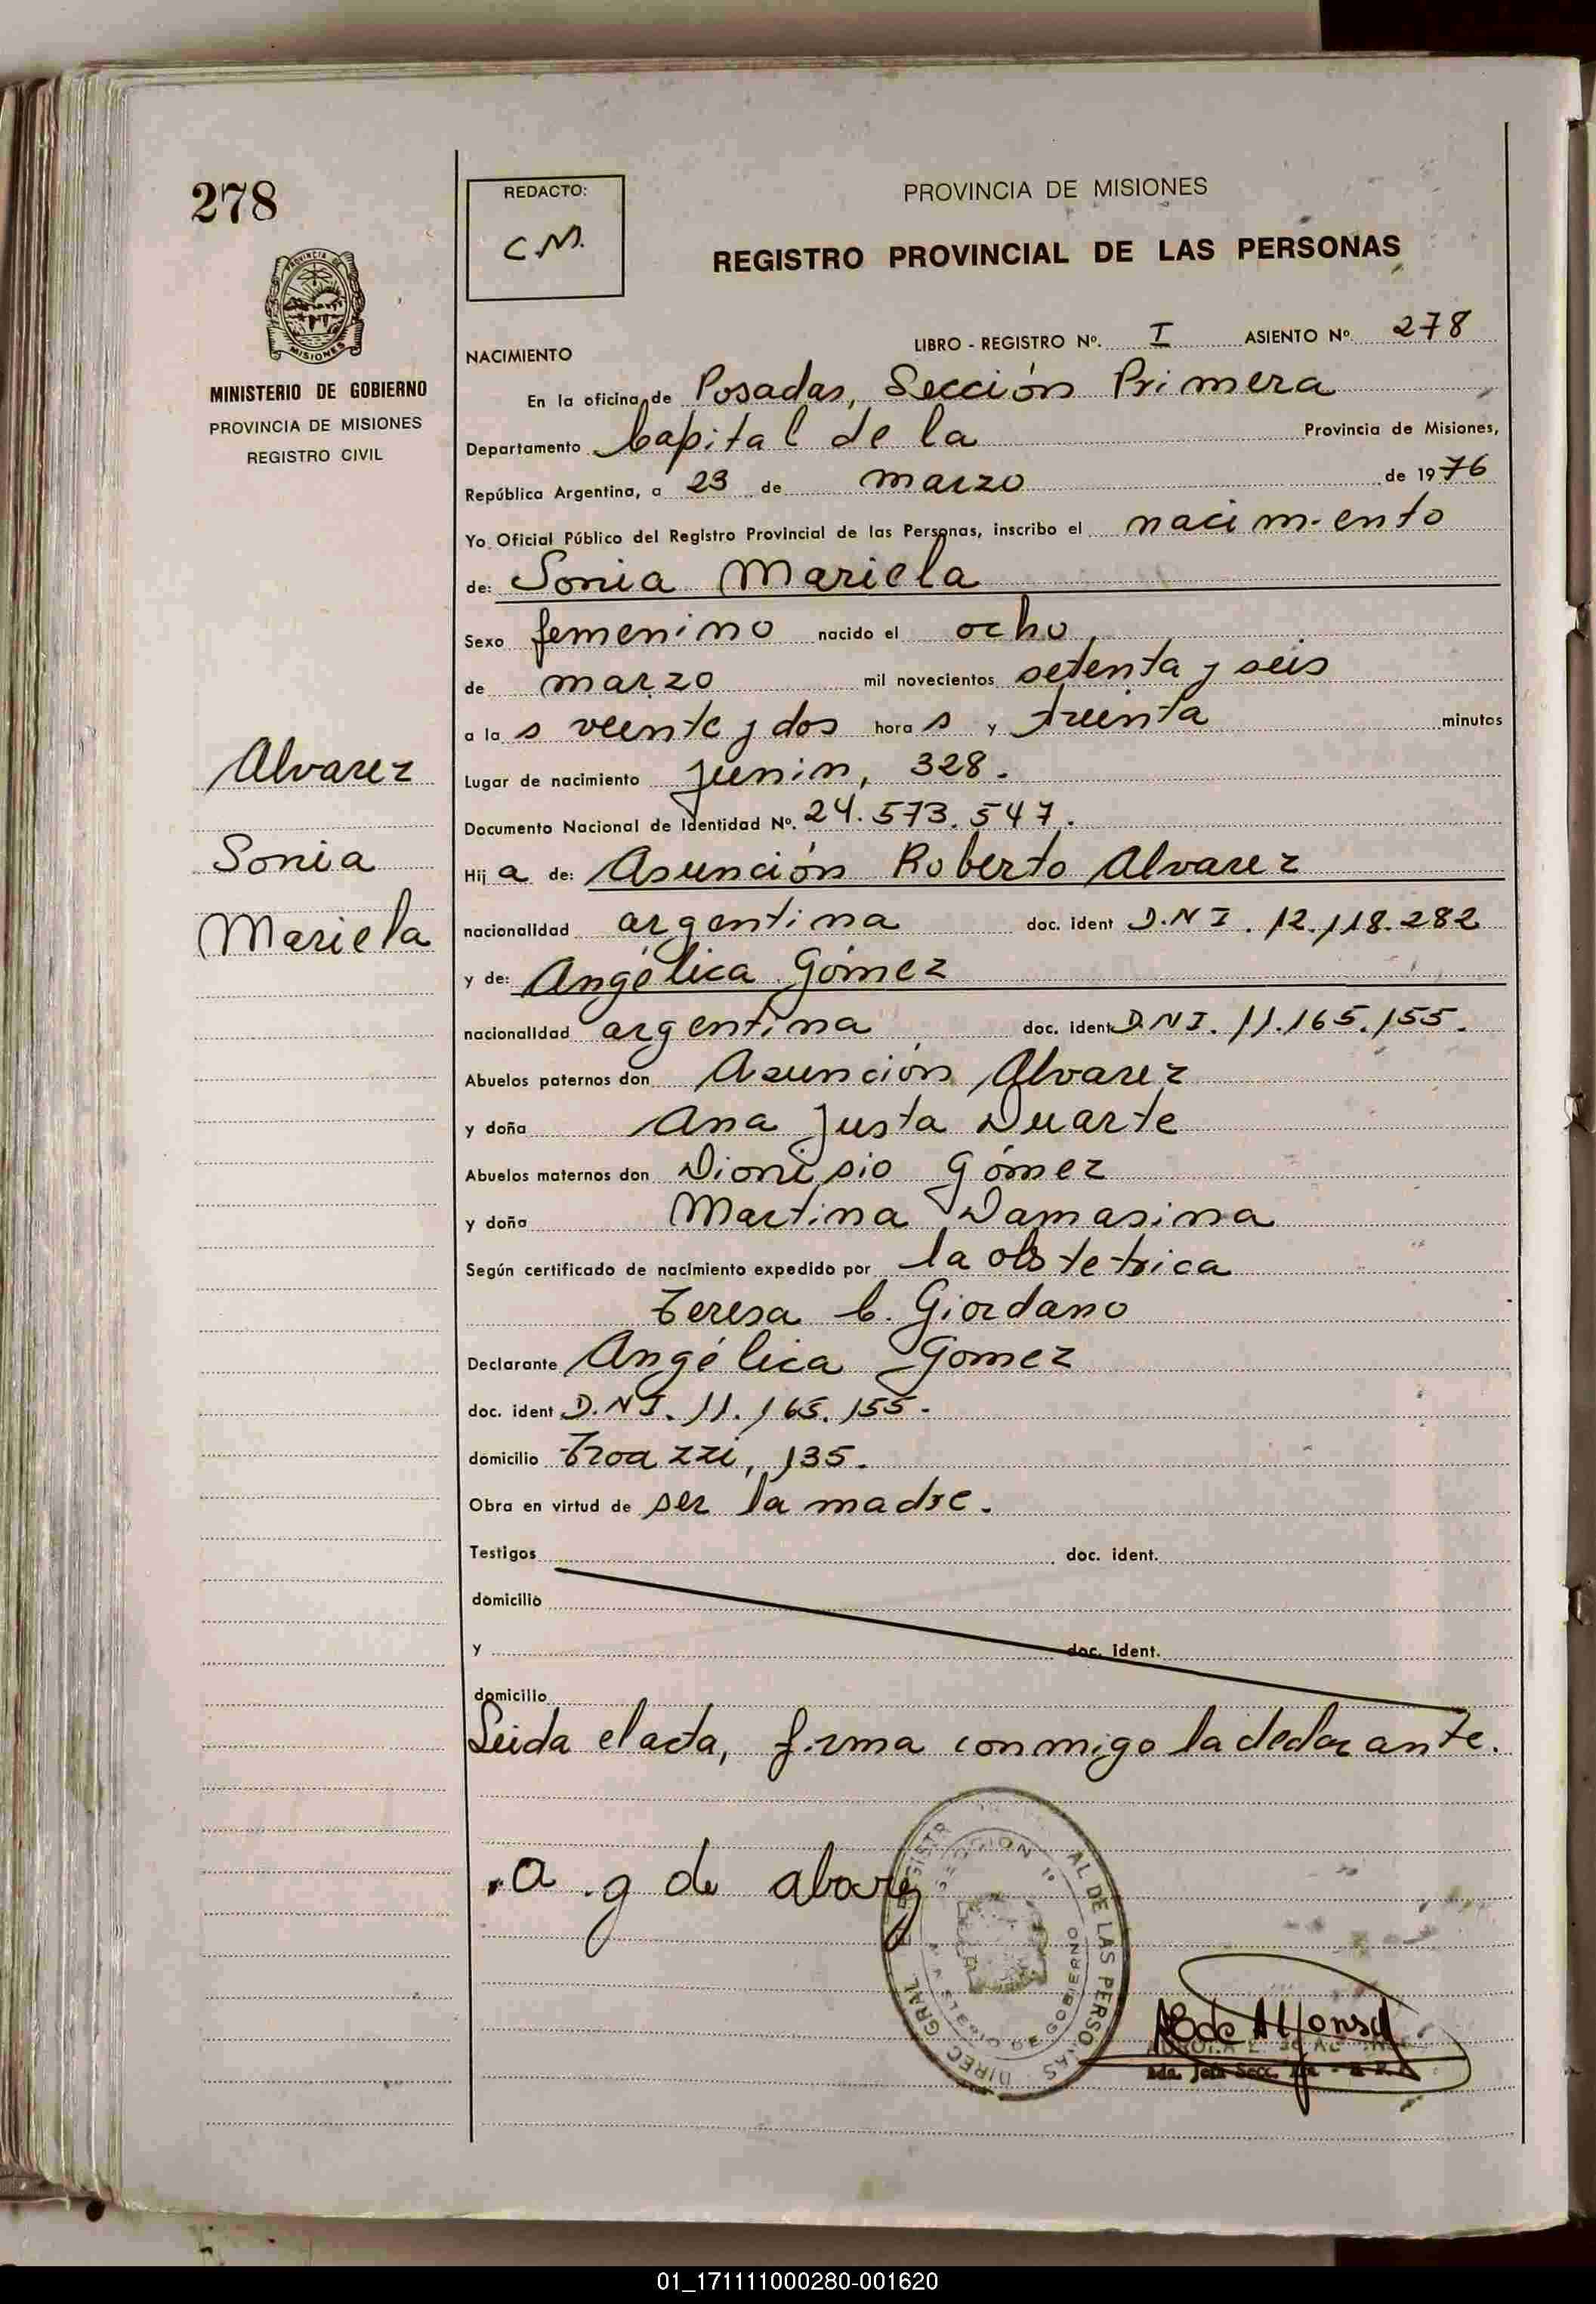 278
REDACTO:
C.M.
PROVINCIA DE MISIONES
REGISTRO PROVINCIAL DE LAS PERSONAS
PROVINCIA DE
MISIONES
MINISTERIO DE GOBIERNO
PROVINCIA DE MISIONES
REGISTRO CIVIL
NACIMIENTO
LIBRO - REGISTRO Nº. I ASIENTO Nº. 278
En la oficina de Posadas, Sección Primera
Departamento Capital de la Provincia de Misiones,
República Argentina, a 23 de marzo de 1976
Yo Oficial Público del Registro Provincial de las Personas, inscribo el nacimiento
de: Sonia Mariela
Sexo femenino nacido el ocho
de marzo mil novecientos setenta y seis
a la s veinte y dos hora s y treinta minutos
Alvarez
Lugar de nacimiento Junin, 328.
Documento Nacional de Identidad Nº. 24.573.547.
Sonia
Hij a de: Asunción Roberto Alvarez
Mariela
nacionalidad argentina doc. ident D.N I. 12.118.282
y de: Angélica Gómez
nacionalidad argentina doc. ident D.N I. 11.165.155.
Abuelos paternos don Asunción Alvarez
y doña Ana Justa Duarte
Abuelos maternos don Dionisio Gómez
y doña Martina Damasina
Según certificado de nacimiento expedido por la obstetrica
Teresa C. Giordano
Declarante Angélica Gomez
doc. ident D.N I. 11.165.155.
domicilio Troazzi, 135.
Obra en virtud de ser la madre.
Testigos doc. ident.
domicilio
y doc. ident.
domicilio
Leida el acta, firma conmigo la declarante.
a g de alvarez
DIREC. GRAL. REGISTR AL DE LAS PERSONAS
SECCION 1º
MINISTERIO DE GOBIERNO
de Alfonso
01_171111000280-001620